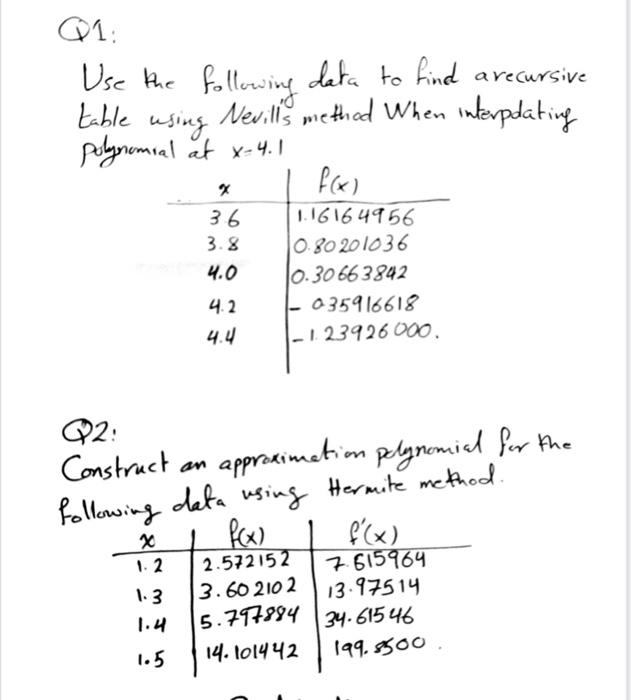 Q1:
Use the following data to find a recursive
table using Nevill's method When interpolating
polynomial at x=4.1
x f(x)
3.6 1.16164956
3.8 0.80201036
4.0 0.30663842
4.2 -0.35916618
4.4 -1.23926000.
Q2:
Construct an approximation polynomial for the
following data using Hermite method.
x f(x) f'(x)
1.2 2.572152 7.615964
1.3 3.602102 13.97514
1.4 5.797884 34.61546
1.5 14.101442 199.8500.